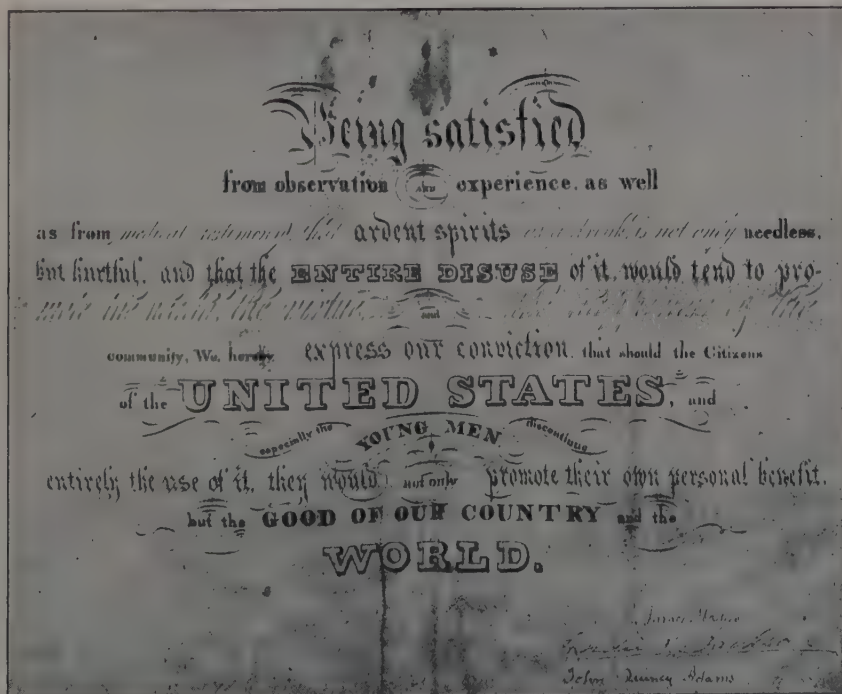 Being satisfied
from observation AND experience, as well
as from medical testimony, that ardent spirits as a drink, is not only needless,
but hurtful, and that the ENTIRE DISUSE of it, would tend to pro-
mote the health, the virtue and the happiness of the
community, We, hereby express our conviction, that should the Citizens
of the UNITED STATES, and
especially the YOUNG MEN discontinue
entirely the use of it, they would not only promote their own personal benefit,
but the GOOD OF OUR COUNTRY and the
WORLD.
James Madison
John Quincy Adams